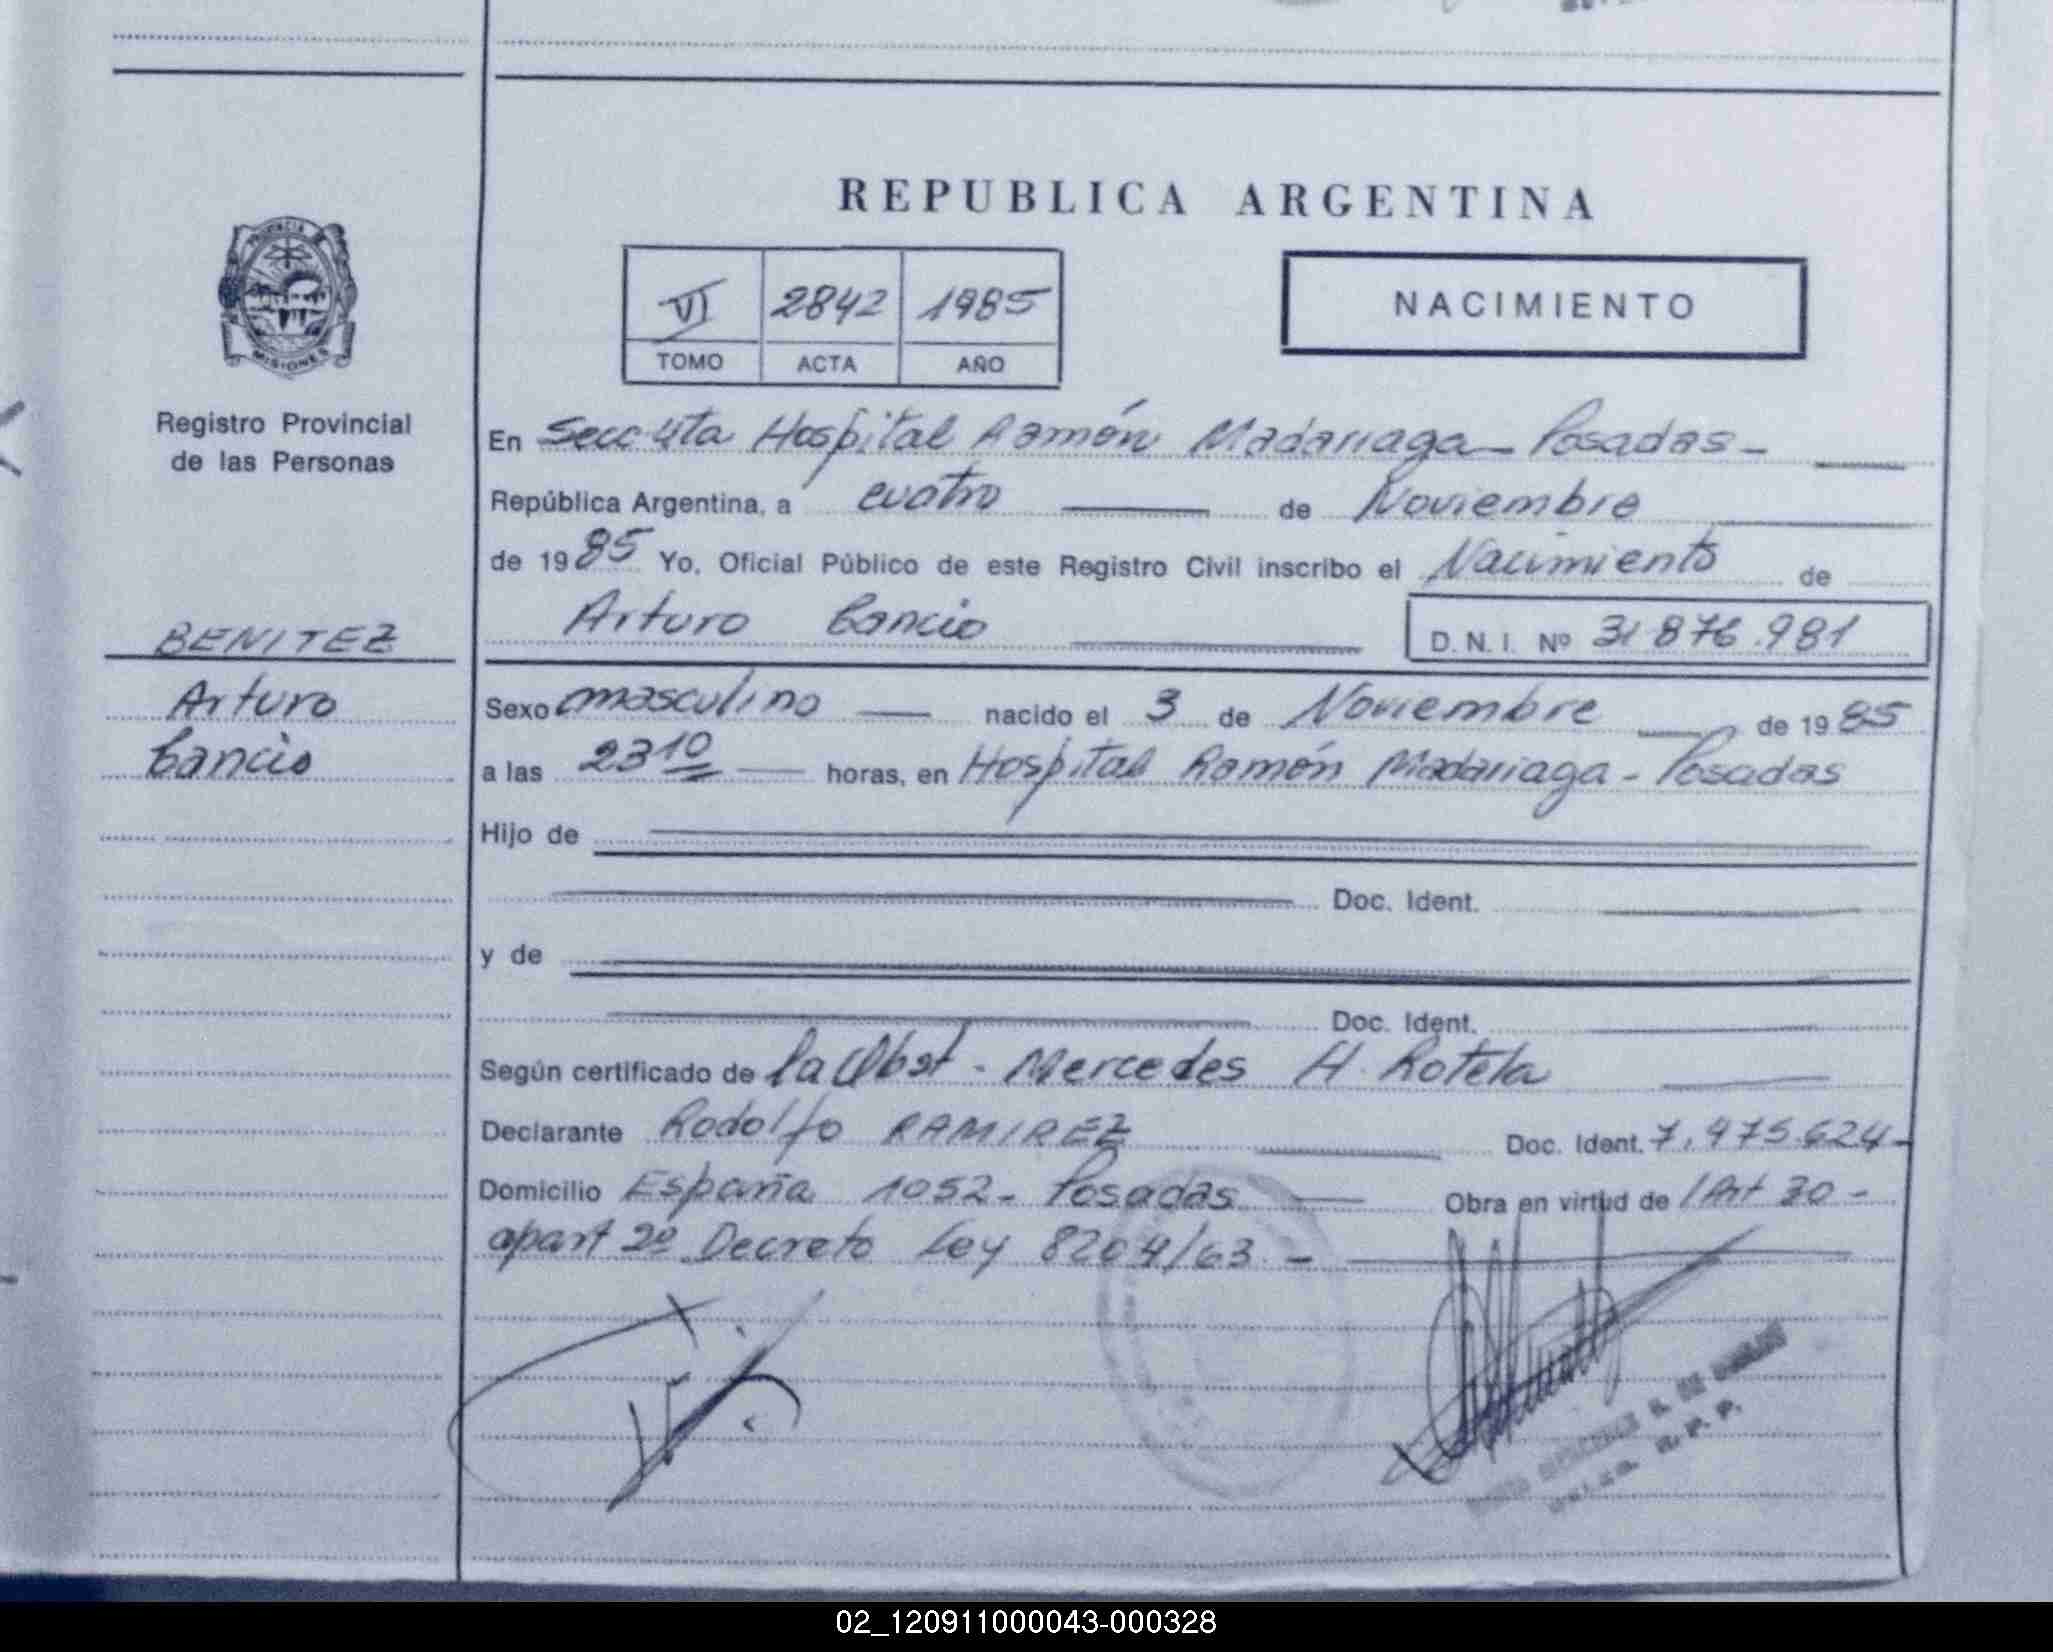 REPUBLICA ARGENTINA
PROVINCIA DE
MISIONES
Registro Provincial
de las Personas
VI 2842 1985
TOMO ACTA AÑO
NACIMIENTO
En Secc 4ta Hospital Ramón Madariaga - Posadas -
República Argentina, a cuatro de Noviembre
de 1985 Yo, Oficial Público de este Registro Civil inscribo el Nacimiento de
Arturo Cancio D. N. I. Nº 31 876.981
BENITEZ
Arturo
Cancio
Sexo masculino nacido el 3 de Noviembre de 1985
a las 23 10 horas, en Hospital Ramón Madariaga - Posadas
Hijo de
Doc. Ident.
y de
Doc. Ident.
Según certificado de la Obst - Mercedes H. Rotela
Declarante Rodolfo RAMIREZ Doc. Ident. 7.475.624-
Domicilio España 1052 - Posadas Obra en virtud de /Art 30 -
apart 2º Decreto Ley 8204/63 -
R. P. P.
02_120911000043-000328